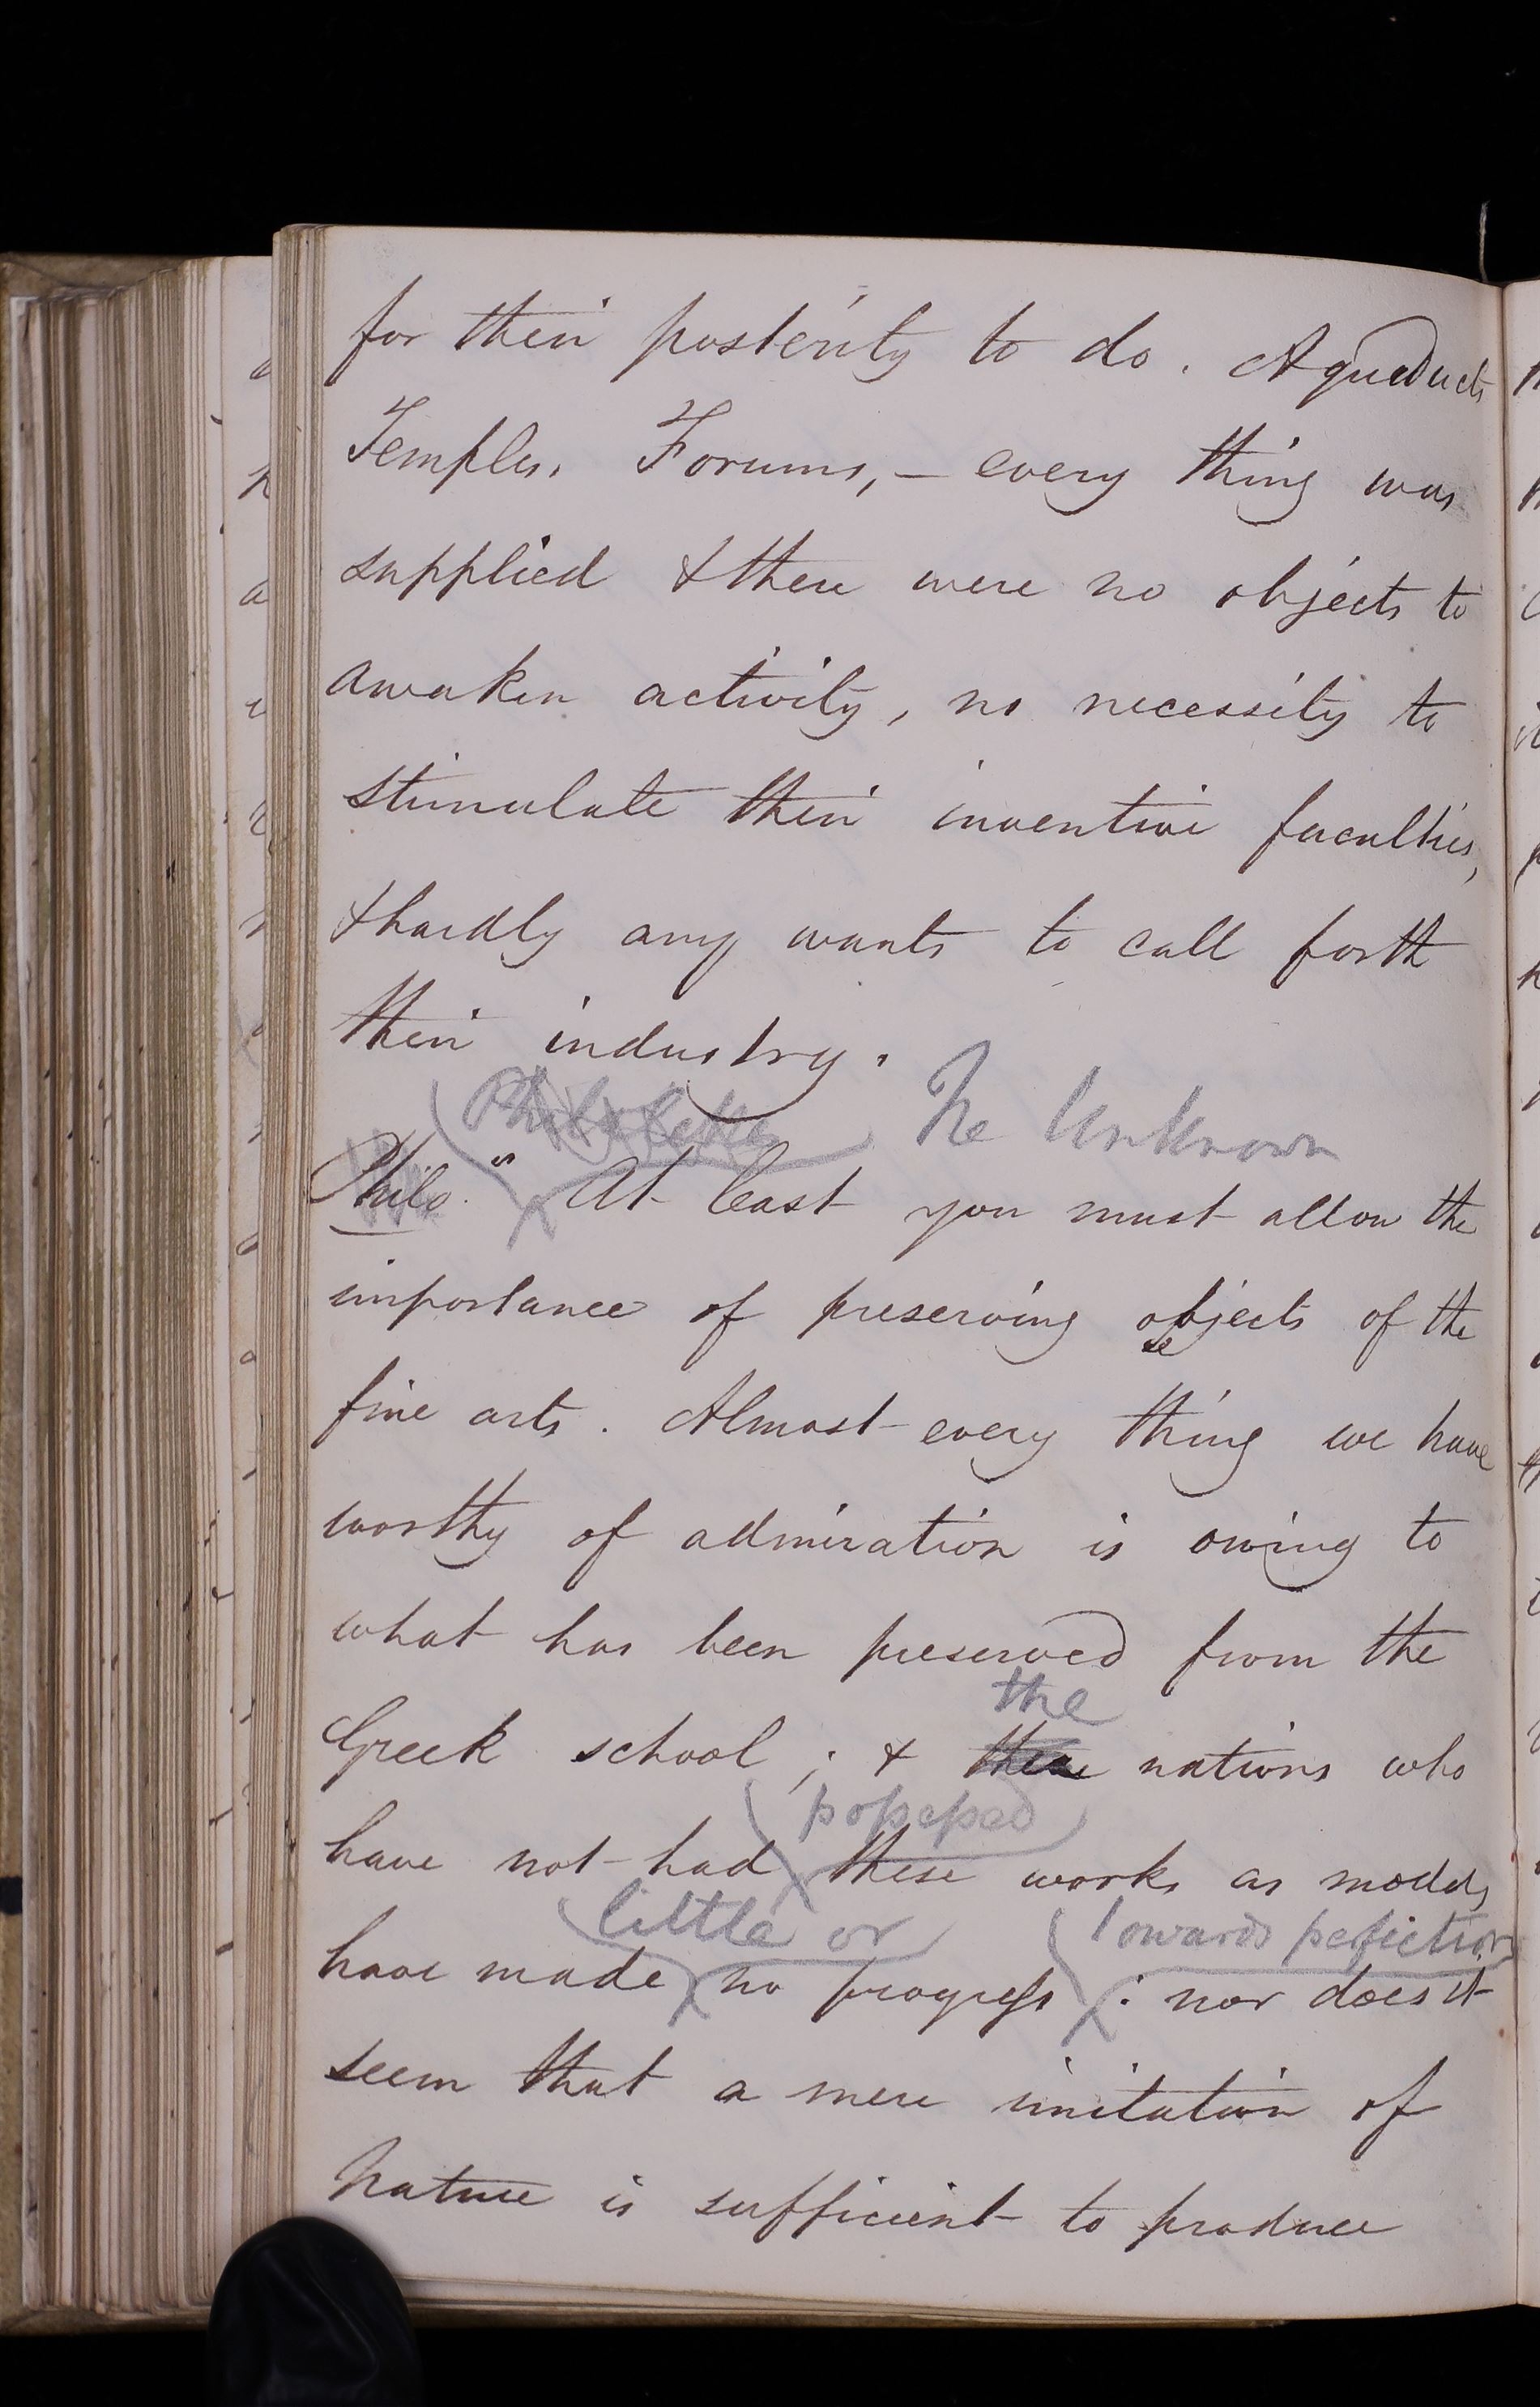 for their posterity to do. Aqueducts
Temples, Forums, — every thing was
supplied & there were no objects to
awaken activity, no necessity to
stimulate their inventive faculties,
& hardly any wants to call forth
their industry.
Philalethes The Unknown
Philo. " At least you must allow the
importance of preserving objects of the
fine arts. Almost every thing we have
worthy of admiration is owing to
what has been preserved from the
the
Greek school; & these nations who
possessed
have not had these works as models
little or towards perfection
have made no progress: nor does it
seem that a mere imitation of
Nature is sufficient to produce